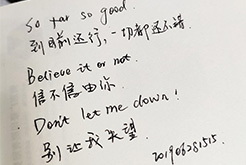 So far so good.
到目前还行,一切都还不错.
Believe it or not.
信不信由你.
Don't let me down!
别让我失望.
201906281515.